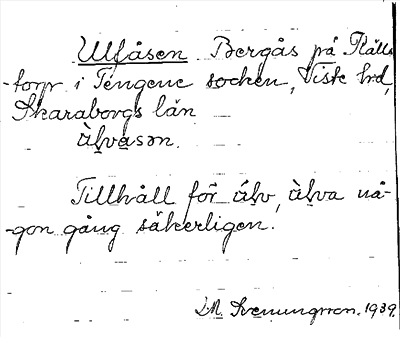 Ulvåsen Bergås på Källs-
-torp i Tengene socken, Viste hrd,
Skaraborgs län
ùlvåsən.
Tillhåll för úlv, ùlva nå-
-gon gång säkerligen.
D.M. Svenungsson. 1939.